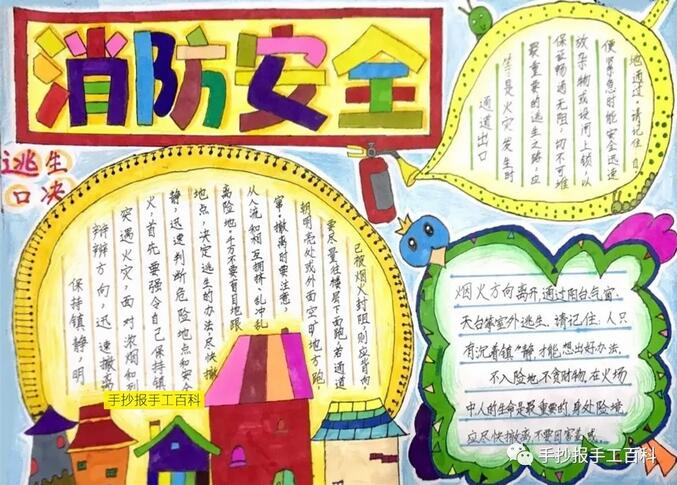 消防安全
逃生
口决
保持镇静，明
辩辩方向，迅速撤离
突遇火灾，面对浓烟和烈
火，首先要强令自己保持镇
静，迅速判断危险地点和安全
地点，决定逃生的办法，尽快撤
离险地。千万不要盲目地跟
从人流和相互拥挤、乱冲乱
窜。撤离时要注意，
朝明亮处或外面空旷地方跑，
要尽量往楼层下面跑，若通道
已被烟火封阻，则应背向
通道出口
等是火灾发生时
最重要的逃生之路，应
保证畅通无阻，切不可堆
放杂物或设闭上锁，以
便紧急时能安全迅速
地通过。请记住：自
烟火方向离开，通过阳台气窗，
天台等室外逃生。请记住：人只
有沉着镇静，才能想出好办法。
不入险地，不贪财物，在火场
中人的生命是最重要的，身处险境，
应尽快撤离，不要因害羞或
手抄报手工百科
手抄报手工百科